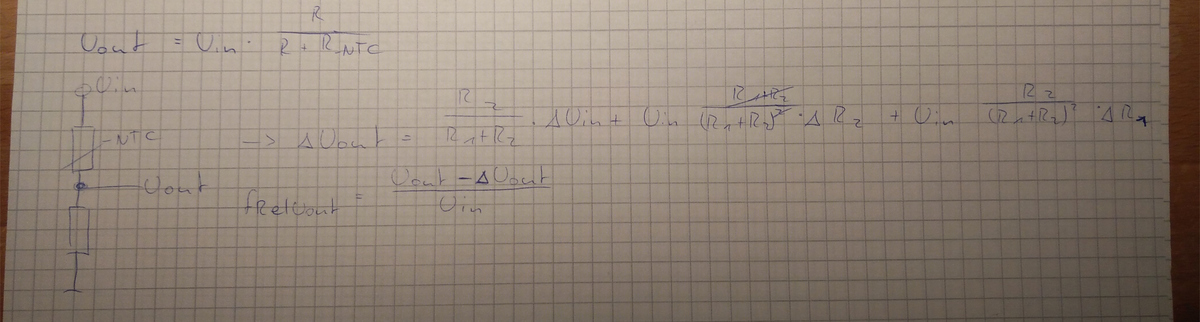 Uout = Uin · R / (R + R_NTC)
Uin
-NTC
→ ΔUout = R2 / (R1+R2) · ΔUin + Uin (R1+R2) / (R1+R2)² · ΔR2 + Uin R2 / (R1+R2)² · ΔR1
Uout
fRelUout = (Uout - ΔUout) / Uin